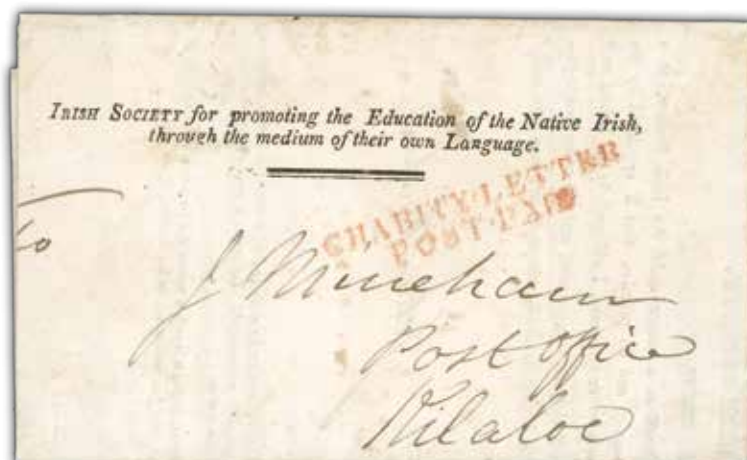 IRISH SOCIETY for promoting the Education of the Native Irish,
through the medium of their own Language.
CHARITY LETTER
POST PAID
To
J Minehan
Post Office
Kilaloe